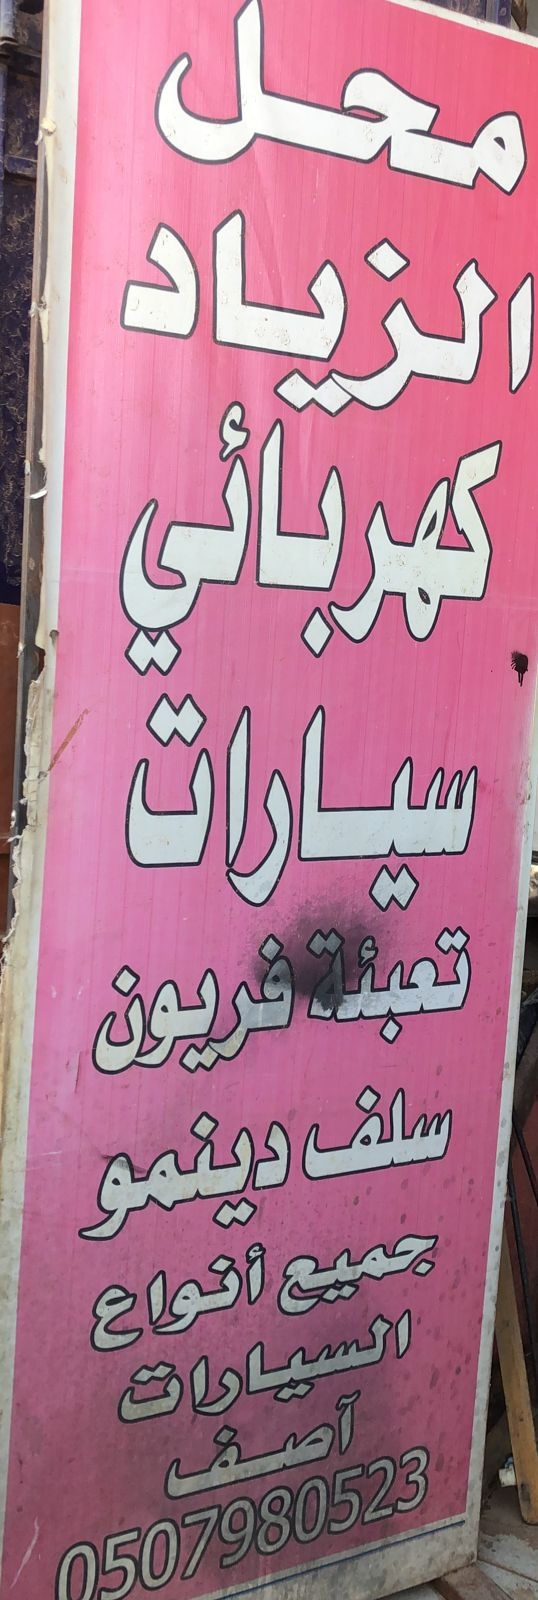 محل
الزياد
كهربائي
سيارات
تعبئة فريون
سلف دينمو
جميع أنواع
السيارات
آصف
0507980523